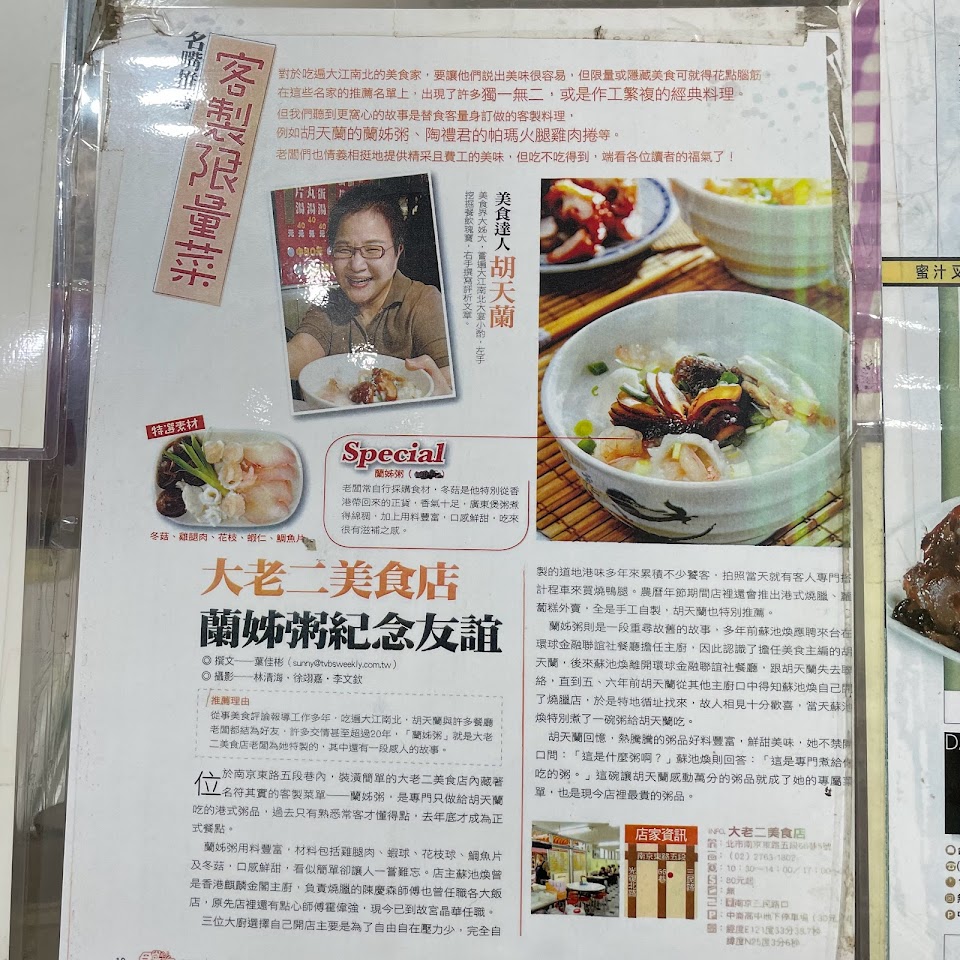 客製限量菜
對於吃遍大江南北的美食家，要讓他們說出美味很容易，但限量或隱藏美食可就得花點腦筋。
在這些名家的推薦名單上，出現了許多獨一無二，或是作工繁複的經典料理。
但我們聽到更窩心的故事是替食客量身訂做的客製料理，
例如胡天蘭的蘭姊粥、陶禮君的帕瑪火腿雞肉捲等。
老闆們也情義相挺地提供精采且費工的美味，但吃不吃得到，端看各位讀者的福氣了！
美食達人 胡天蘭
美食界大姊大，嘗遍大江南北大宴小酌，左手
挖掘餐飲瑰寶，右手撰寫評析文章。
特選素材
冬菇、雞腿肉、花枝、蝦仁、鯛魚片
Special
蘭姊粥
老闆常自行採購食材，冬菇是他特別從香
港帶回來的正貨，香氣十足，廣東煲粥煮
得綿稠，加上用料豐富，口感鮮甜，吃來
很有滋補之感。
大老二美食店
蘭姊粥紀念友誼
◎ 撰文──葉佳彬（sunny@tvbsweekly.com.tw）
◎ 攝影──林清海、徐翊嘉、李文欽
推薦理由
從事美食評論報導工作多年，吃遍大江南北，胡天蘭與許多餐廳
老闆都結為好友，許多交情甚至超過20年，「蘭姊粥」就是大老
二美食店老闆為她特製的，其中還有一段感人的故事。
位於南京東路五段巷內，裝潢簡單的大老二美食店內藏著
名符其實的客製菜單──蘭姊粥，是專門只做給胡天蘭
吃的港式粥品，過去只有熟悉常客才懂得點，去年底才成為正
式餐點。
蘭姊粥用料豐富，材料包括雞腿肉、蝦球、花枝球、鯛魚片
及冬菇，口感鮮甜，看似簡單卻讓人一嘗難忘。店主蘇池煥曾
是香港麒麟金閣主廚，負責燒臘的陳慶森師傅也曾任職各大飯
店，原先店裡還有點心師傅霍偉強，現今已到故宮晶華任職。
三位大廚選擇自己開店主要是為了自由自在壓力少，完全自
製的道地港味多年來累積不少饕客，拍照當天就有客人專門搭
計程車來買燒鴨腿。農曆年節期間店裡還會推出港式燒臘、蘿
蔔糕外賣，全是手工自製，胡天蘭也特別推薦。
蘭姊粥則是一段重尋故舊的故事，多年前蘇池煥應聘來台在
環球金融聯誼社餐廳擔任主廚，因此認識了擔任美食主編的胡
天蘭，後來蘇池煥離開環球金融聯誼社餐廳，跟胡天蘭失去聯
絡，直到五、六年前胡天蘭從其他主廚口中得知蘇池煥自己開
了燒臘店，於是特地循址找來，故人相見十分歡喜，當天蘇池
煥特別煮了一碗粥給胡天蘭吃。
胡天蘭回憶，熱騰騰的粥品好料豐富，鮮甜美味，她不禁開
口問：「這是什麼粥啊？」蘇池煥則回答：「這是專門煮給你
吃的粥。」這碗讓胡天蘭感動萬分的粥品就成了她的專屬菜
單，也是現今店裡最貴的粥品。
店家資訊
南京東路五段
66巷
三民路
INFO. 大老二美食店
北市南京東路五段66巷9號
（02）2763-1802
80元起
無
南京三民路口
蜜汁叉